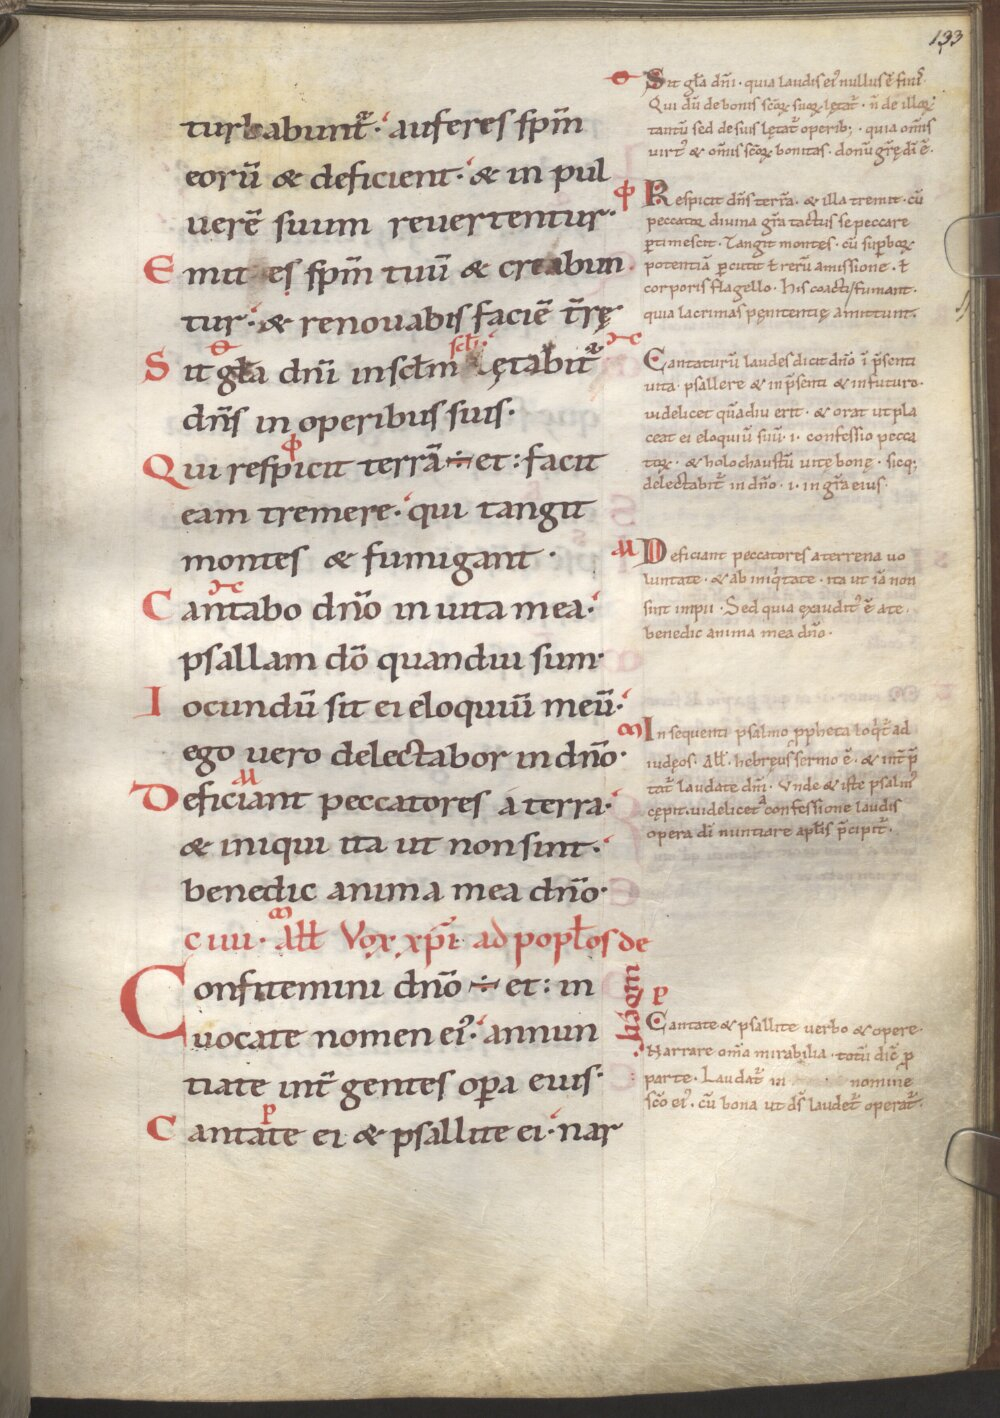 133
turbabunt᷑. auferes spm̄
eorū & deficient. & in pul
verē suum revertentur.
Emittes spm̄ tuū & creabun
tur. & renovabis faciē t̄rę
Sit gl̄a dnī in scl̄m scl̄i. & lętabit᷑
dn̄s in operibus suis.
Qui respicit terrā ÷ et : facit
eam tremere. qui tangit
montes & fumigant.
Cantabo dn̄o in vita mea.
psallam dō quandiu sum.
Iocundū sit ei eloquiū meū.
ego vero delectabor in dn̄o.
Deficiant peccatores a terra.
& iniqui ita ut non sint.
benedic anima mea dn̄o.
ciiii. All̄ Vox xp̄i ad popl̄os de
Confitemini dn̄o ÷ et : in
vocate nomen ei᾽. annun
tiate int̄ gentes op̄a eius.
Cantate ei & psallite ei. nar
Sit gl̄a dn̄i. quia laudis ei᾽ nullus ē finis.
Qui dū de bonis scōꝝ suoꝝ lętat᷑. n̄ de illoꝝ
tantū sed de suis lętat᷑ operib; . quia om̄is
virt᾽ & om̄is scōꝝ bonitas. donū gr̄ę dī ē.
Respicit dn̄s terrā. & illa tremit. cū
peccator divina gr̄a tactus se peccare
ꝑtimescit. Tangit montes. cū suꝑboꝝ
potentiā ꝑcutit t̄ rerū amissione. t̄
corporis flagello. his coacti fumant.
quia lacrimas pęnitentię amittunt.
Cantaturū laudes dicit dn̄o ī p̄senti
vita. psallere & in p̄senti & in futuro.
videlicet qͣdiu erit. & orat ut pla
ceat ei eloquiū suū .i. confessio pecca
toꝝ. & holochaustū vitę bonę. sicq;
delectabit᷑ in dn̄o .i. in gr̄a eius.
Deficiant peccatores a terrena vo
luntate. & ab iniqͥtate. ita ut iā non
sint impii. Sed quia exaudit᾽ ē a te.
benedic anima mea dn̄o.
In sequenti psalmo ꝓpheta loqͥt᷑ ad
iudęos. All̄. hebręus sermo ē. & int̄p̄
tat᷑ laudate dn̄m. Unde & iste psalm᾽
cępit. videlicet a confessione laudis
opera dī nuntiare apl̄is p̄cipit᷑.
Cantate & psallite verbo & opere.
Narrare om̄a mirabilia. totū dic̄ ꝓ
parte. Laudat᷑ in nomine
scō ei᾽. cū bona ut ds̄ laudet᷑ operat᷑.